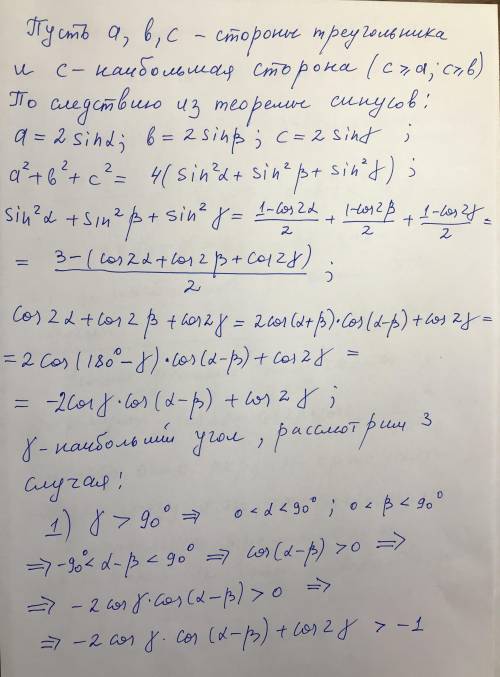 Пусть a, в, c - стороны треугольника
и c - наибольшая сторона (c ⩾ a; c ⩾ в)
По следствию из теоремы синусов:
a = 2 sinα; в = 2 sinβ; c = 2 sinγ ;
a² + в² + c² = 4(sin²α + sin²β + sin²γ) ;
sin²α + sin²β + sin²γ = (1-cos2α)/2 + (1-cos2β)/2 + (1-cos2γ)/2 =
= (3-(cos2α+cos2β+cos2γ))/2 ;
cos2α + cos2β + cos2γ = 2cos(α+β)·cos(α-β) + cos2γ =
= 2cos(180°-γ)·cos(α-β) + cos2γ =
= -2cosγ·cos(α-β) + cos2γ ;
γ - наибольший угол, рассмотрим 3
случая:
1) γ > 90° ⇒ 0 < α < 90° ; 0 < β < 90°
⇒ -90° < α-β < 90° ⇒ cos(α-β) > 0 ⇒
⇒ -2cosγ·cos(α-β) > 0 ⇒
⇒ -2cosγ·cos(α-β) + cos2γ > -1